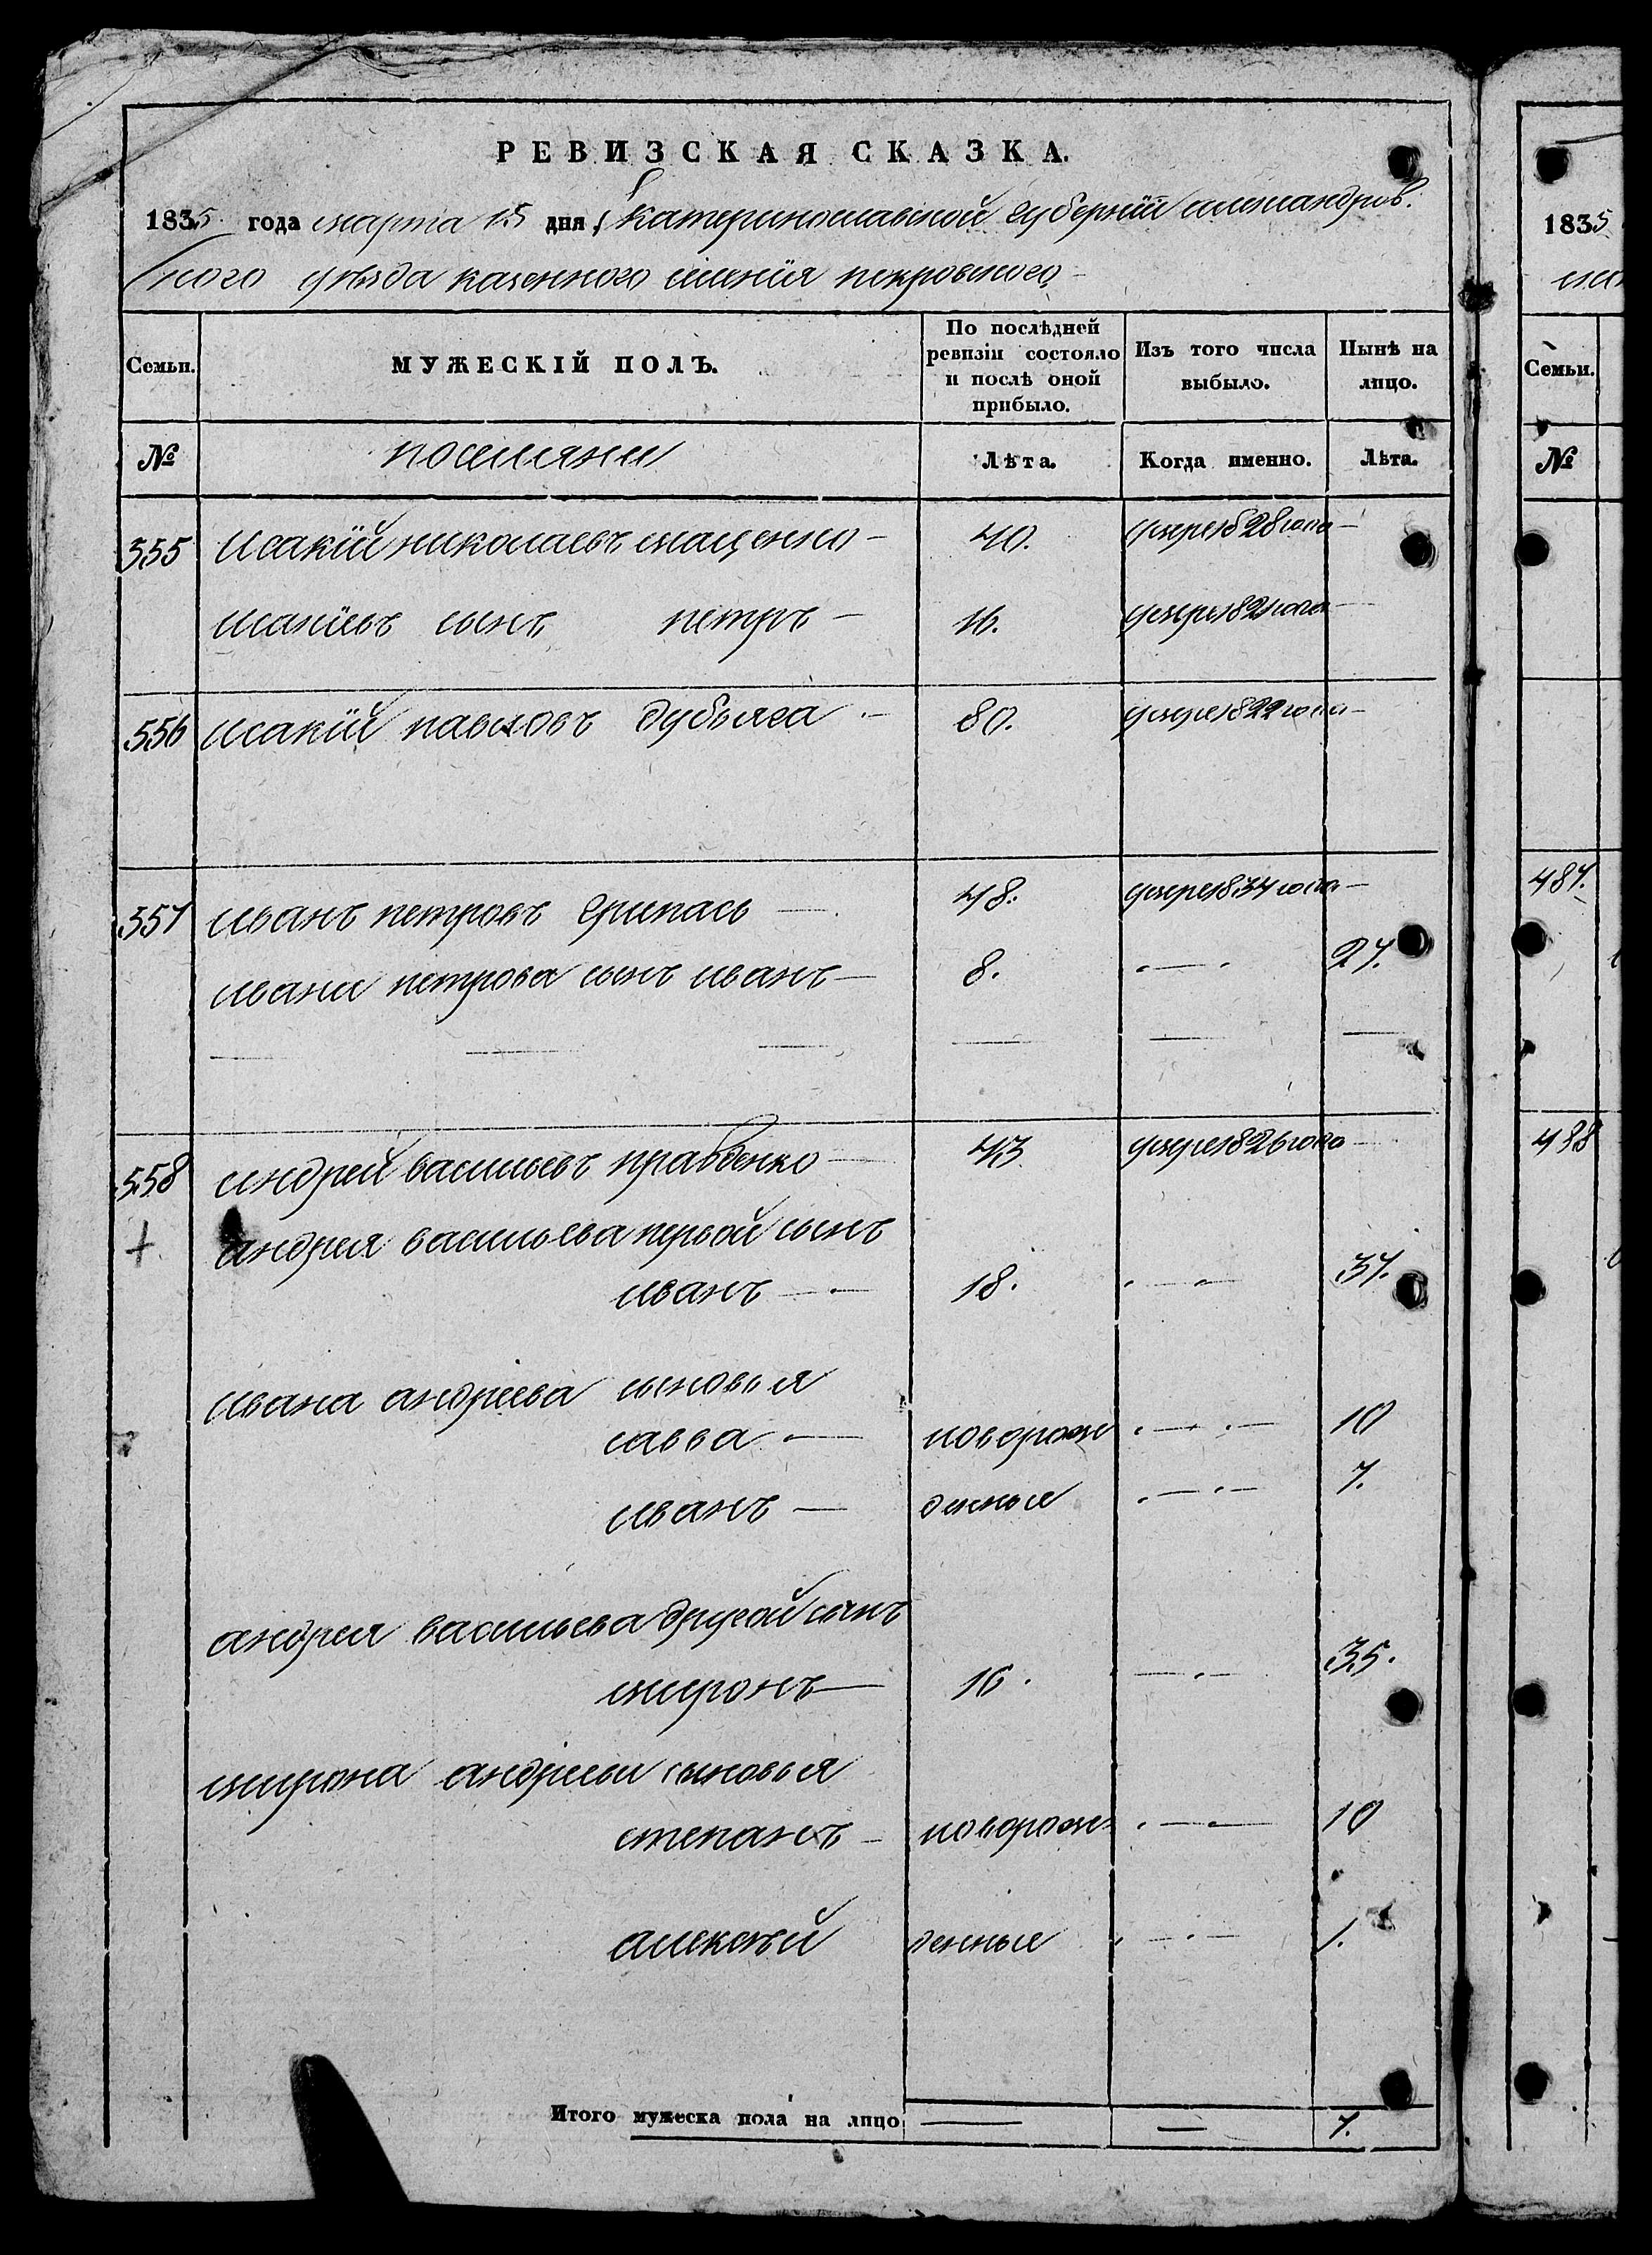 РЕВИЗСКАЯ СКАЗКА.
1835 года марта 15 дня Екатеринославской губернии александров.
ского уѣзда казенного селенія покровского
Семьи. МУЖЕСКІЙ ПОЛЪ. По послѣдней ревизіи состояло и послѣ оной прибыло. Изъ того числа выбыло. Нынѣ на лицо.
№ поселяни Лѣта. Когда именно. Лѣта.
355 Исакій николаевъ мащенко — 40. умре 1828 года —
сынъ петръ — 16. умре 1821 года —
556 Исакій павловъ дубяга — 80. умре 1822 года —
557 Иванъ петровъ — 48. умре 1834 года —
Ивана петрова сынъ иванъ — 8. — 27.
558 андрей васильевъ правденко — 43 умре 1826 года
андрея васильева первой сынъ
иванъ — 18. — 37.
Ивана андрѣева сыновья
савва — новорож — 10
иванъ — денные — 7.
андрея васильева другой сынъ
миронъ — 16. — 35.
мирона андрѣева сыновья
степанъ — новорож — 10
алексѣй денные — 1.
Итого мужеска пола на лицо — — 7.
1835
Семьи.
№
487.
488